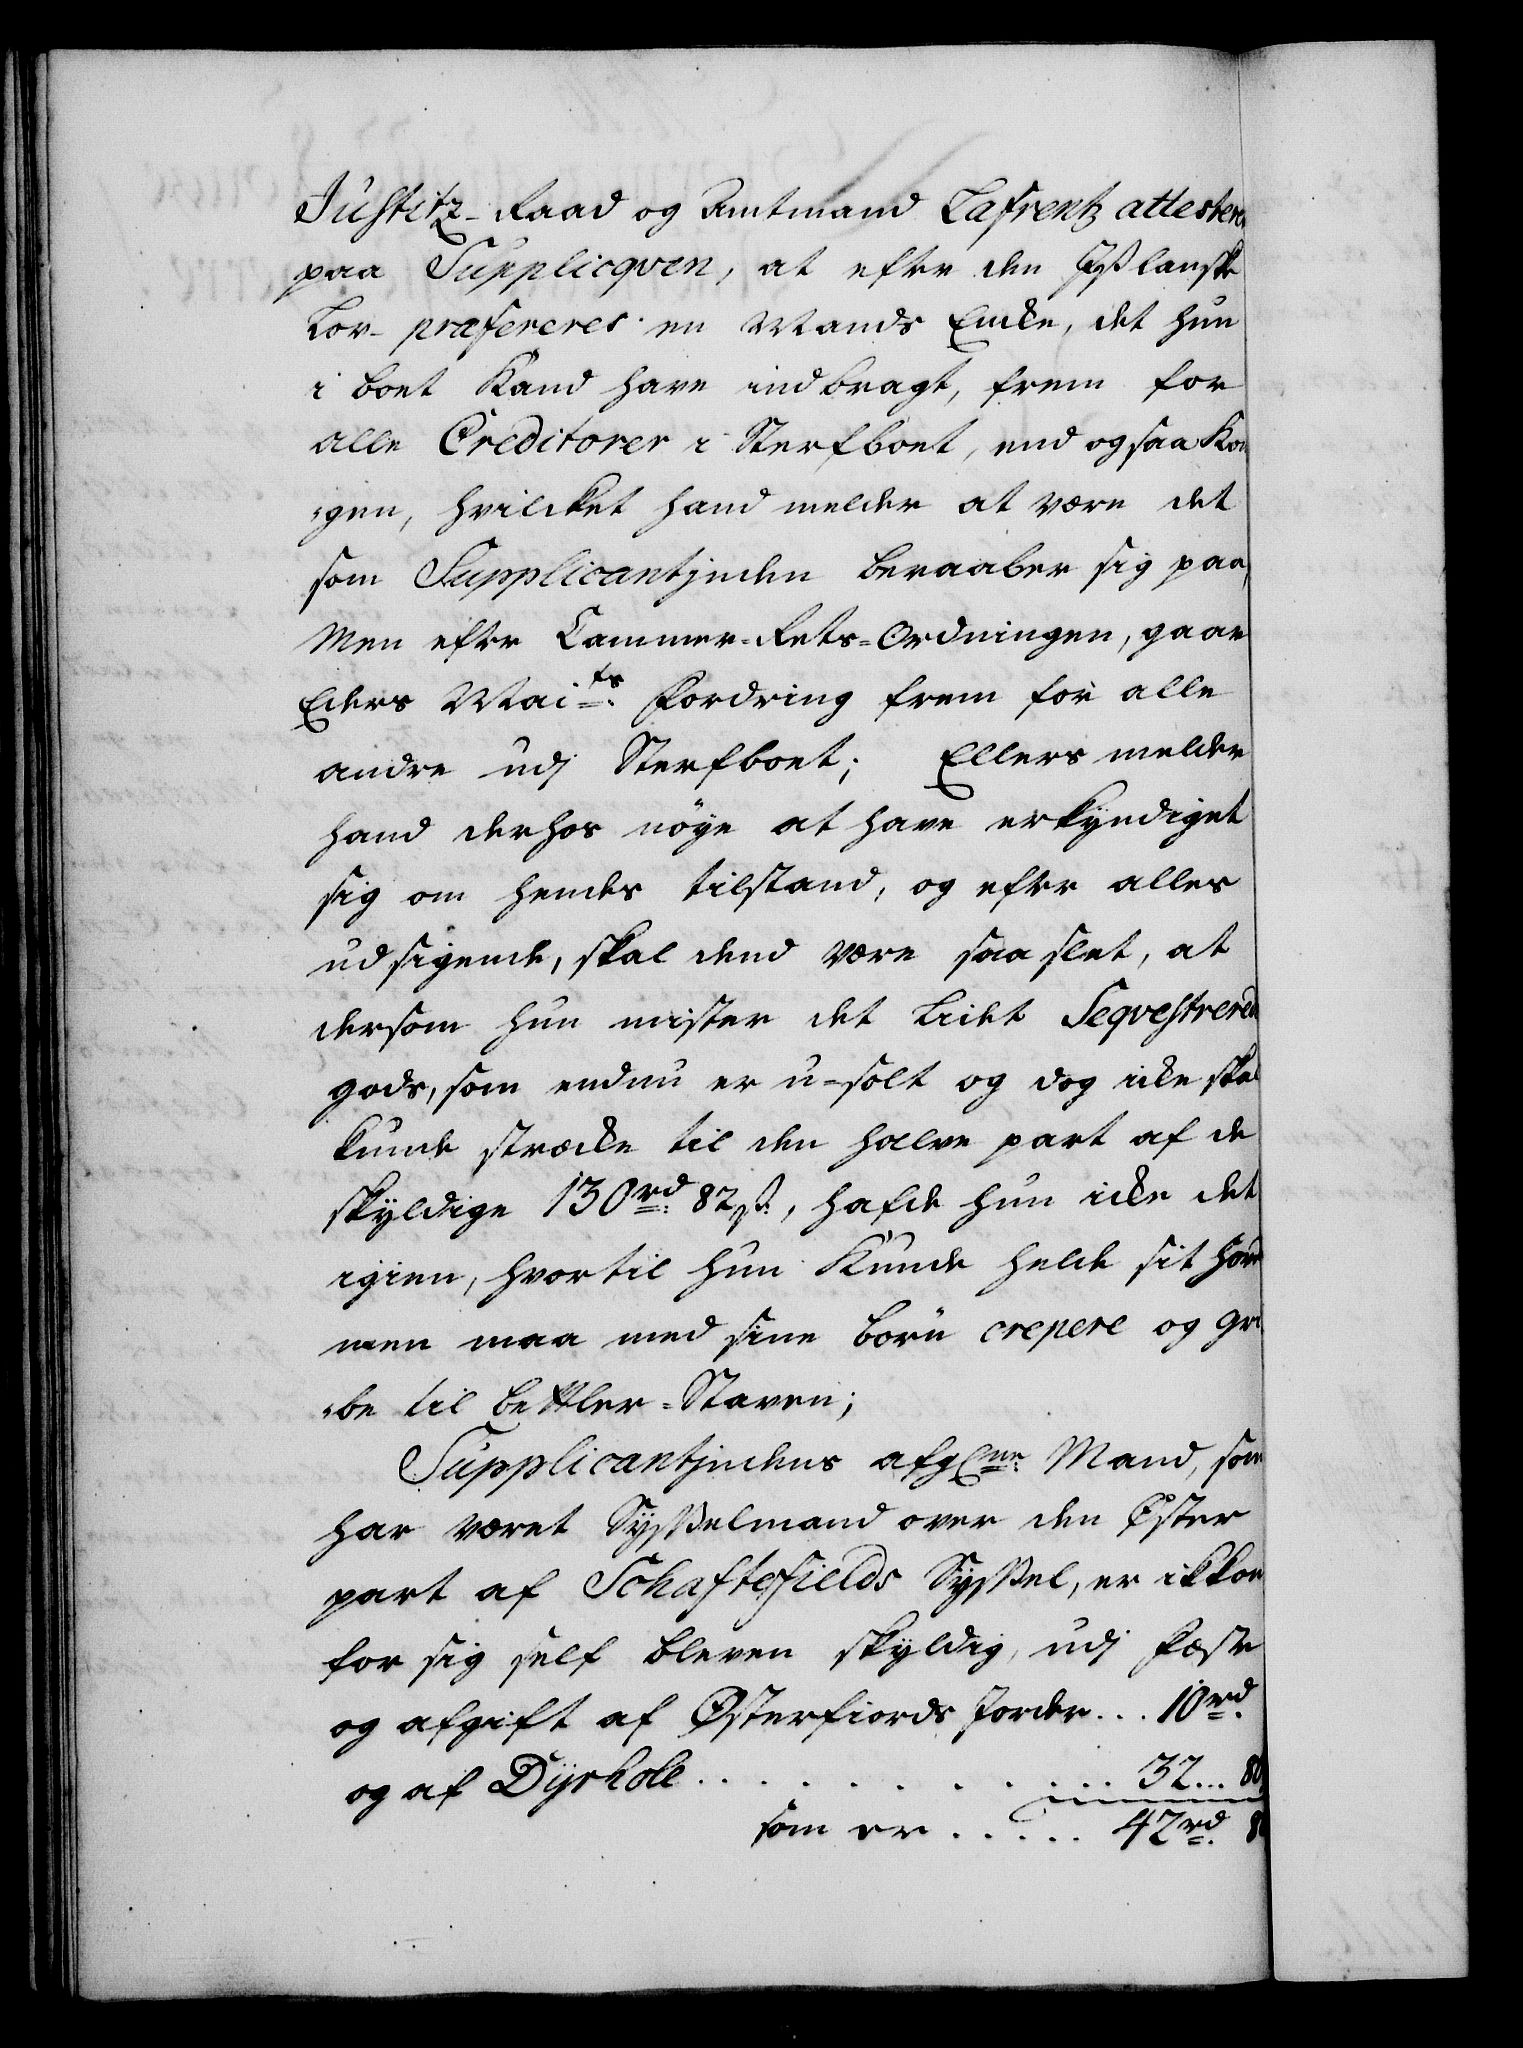 Justitz-Raad og Amtmand Lafrentz attestere
paa Supplicqven, at efter den Ißlanske
Lov præfereres en Mands Encke, det hun
i boet Kand have indbragt, frem for
alle Creditorer i Sterfboet, end og saa Kon
-gen, hvilcket hand melder at være det
som Supplicantinden beraaber sig paa,
Men efter Cammer-Rets-Ordningen, gaar
Eders Maits. Fordring frem for alle
andre udj Sterfboet; Ellers melder
hand derhos nöye at have erkyndiget
sig om hendes tilstand, og efter alles
udsigende, skal dend være saa slet, at
dersom hun mister det lidet Seqvestrered
gods, som endnu er u-solt og dog icke skal
kunde stræcke til den halve part af de
skyldige 130rd. 82ß, hafde hun icke det
igien, hvortil hun Kunde helde sit Hov
men maa med sine børn crepere og gri
-be til bettler-Staven;
Supplicantindens afgl.ne Mand, som
har været Sysselmand over den Øster
part af Schaftefields Syssel, er ikkon
for sig self bleven skyldig, udj Fæste
og afgift af Østerfiords Jorder... 10rd.
og af Dyrhole . . . . . . . . . 32... 80
som er . . . . . 42rd. 8